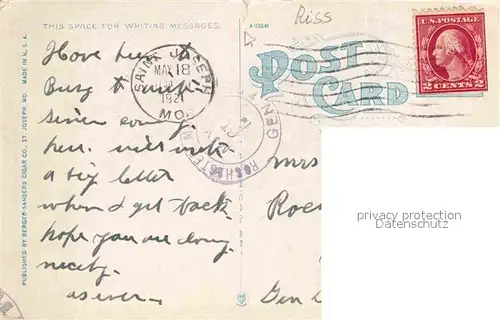 Riss
THIS SPACE FOR WRITING MESSAGES.
A-13241
POST CARD
U.S. POSTAGE
2 CENTS 2
SAINT JOSEPH
MAY 18
1921
MO.
ROCHESTER
GEN
PUBLISHED BY BERGER-SANDERS CIGAR CO., ST. JOSEPH, MO. MADE IN U.S.A.
Have been to
Busy to write
since
here. will write
a big letter
when I get back.
hope you are doing
nicely.
as ever.
Mrs
Gen
privacy protection
Datenschutz